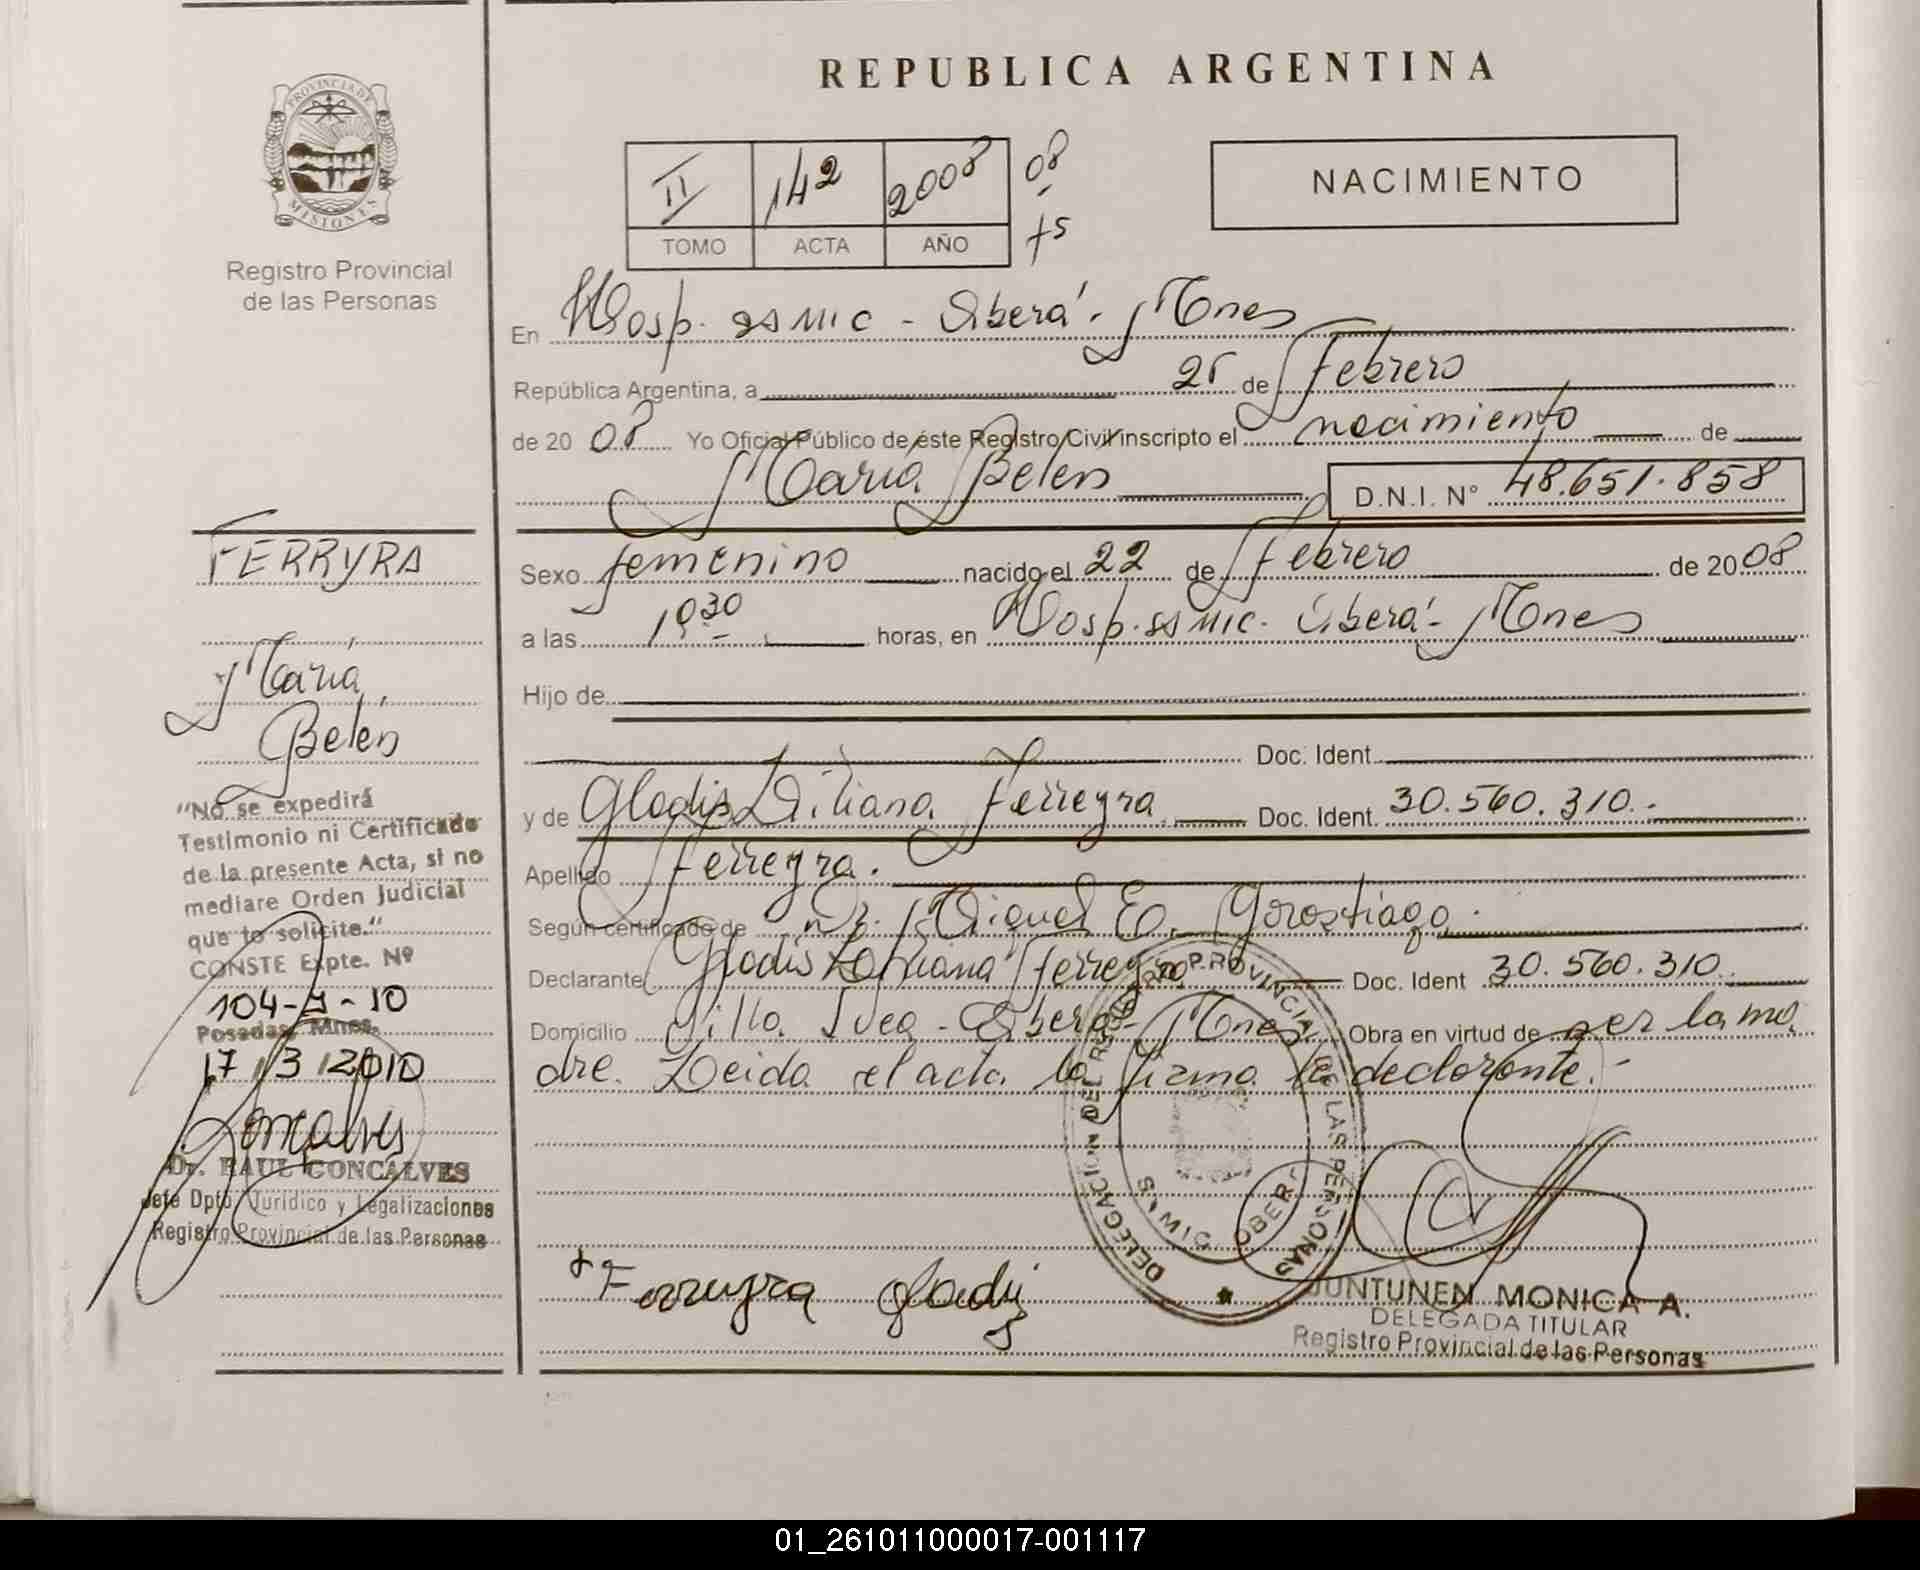 REPUBLICA ARGENTINA
PROVINCIA DE
MISIONES
Registro Provincial
de las Personas
II 142 2008 08
TOMO ACTA AÑO
NACIMIENTO
En Hosp. Oberá - Mnes
República Argentina, a 25 de Febrero
de 20 08 Yo Oficial Público de éste Registro Civil inscripto el nacimiento de
María Belén D.N.I. N° 48.651.858
Sexo femenino nacido el 22 de Febrero de 20 08
a las horas, en Hosp. Oberá - Mnes
Hijo de
Doc. Ident.
y de Gladis Liliana Ferreyra Doc. Ident. 30.560.310.-
Apellido Ferreyra.
Según certificado de Dr. Miguel E. Gorostiaga.
Declarante Gladis Liliana Ferreyra Doc. Ident 30.560.310.
Domicilio Villa Svea - Oberá - Mnes Obra en virtud de ser la ma
dre. Leida el acta la firma la declarante.-
FERRYRA
María
Belén
"No se expedirá
Testimonio ni Certificado
de la presente Acta, si no
mediare Orden Judicial
que lo solicite."
CONSTE Expte. Nº
104-J-10
Posadas, Mnes.
17/3/2010
Gonçalves
Dr. RAUL GONCALVES
Jefe Dpto. Jurídico y Legalizaciones
Registro Provincial de las Personas
DELEGACION DEL REGISTRO PROVINCIAL DE LAS PERSONAS
OBERA
Ferreyra gladis
JUNTUNEN MONICA A.
DELEGADA TITULAR
Registro Provincial de las Personas
01_261011000017-001117